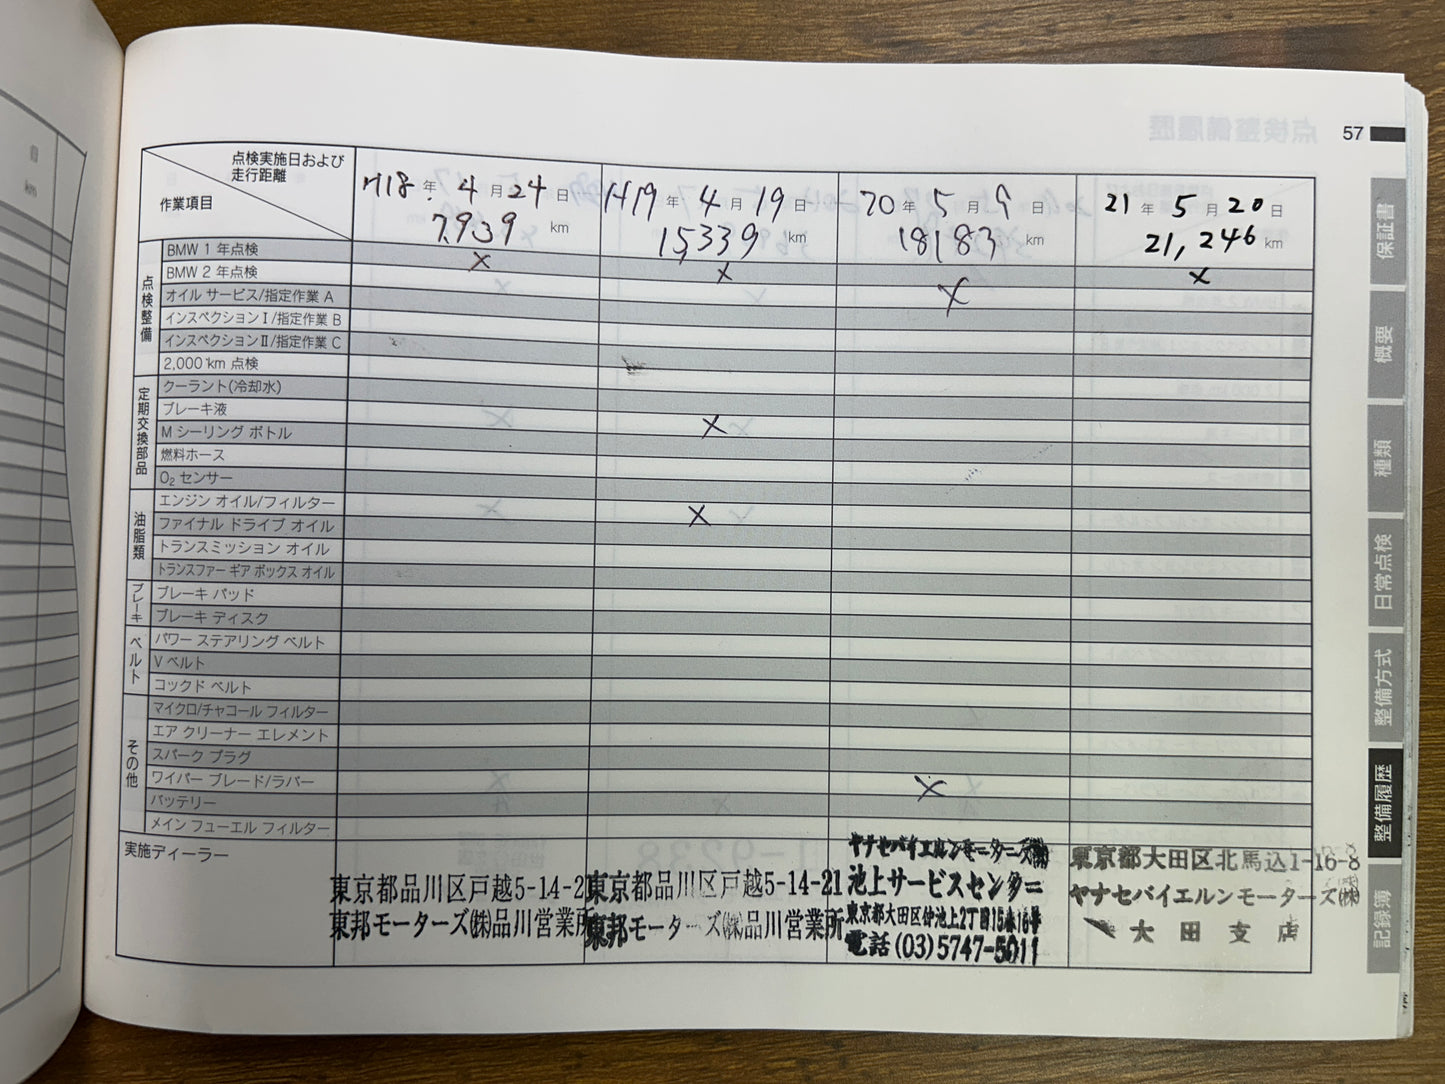 57
点検実施日および
走行距離
作業項目
H18年 4月24日
7,939 km
H19年 4月19日
15,339 km
20年 5月9日
18183 km
21年 5月20日
21,246 km
点検整備
BMW 1 年点検
×
BMW 2 年点検
× ×
オイル サービス/指定作業 A
×
インスペクション I /指定作業 B
インスペクション II/指定作業 C
2,000 km 点検
定期交換部品
クーラント(冷却水)
ブレーキ液
×
M シーリング ボトル
燃料ホース
O₂ センサー
油脂類
エンジン オイル/フィルター
×
ファイナル ドライブ オイル
トランスミッション オイル
トランスファー ギア ボックス オイル
ブレーキ
ブレーキ パッド
ブレーキ ディスク
ベルト
パワー ステアリング ベルト
V ベルト
コックド ベルト
その他
マイクロ/チャコール フィルター
エア クリーナー エレメント
スパーク プラグ
ワイパー ブレード/ラバー
×
バッテリー
メイン フューエル フィルター
実施ディーラー
東京都品川区戸越5-14-21
東邦モーターズ㈱品川営業所
東京都品川区戸越5-14-21
東邦モーターズ㈱品川営業所
ヤナセバイエルンモーターズ㈱
池上サービスセンター
東京都大田区仲池上2丁目15番16号
電話 (03) 5747-5011
東京都大田区北馬込1-16-8
ヤナセバイエルンモーターズ㈱
大田支店
保証書
概要
種類
日常点検
整備方式
整備履歴
記録簿